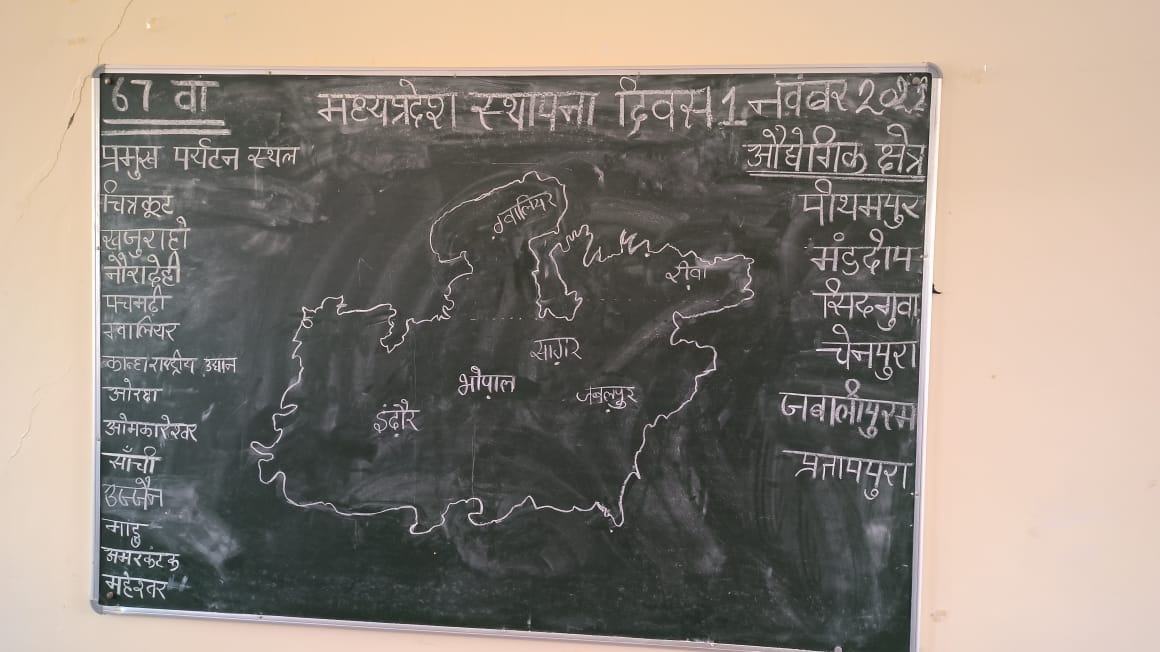 67 वा मध्यप्रदेश स्थापना दिवस 1 नवंबर 2022
पमुख पर्यटन स्थल
चित्रकूट
खजुराहो
नौरादेही
पचमढी
ग्वालियर
कान्हा राष्ट्रीय उद्यान
ओरछा
ओमकारेश्वर
साँची
उज्जैन
माडु
अमरकंटक
महेश्वर
ग्वालियर
रीवा
सागर
भोपाल
जबलपुर
इंदौर
औद्योगिक क्षेत्र
पीथमपुर
मंडदीप
सिदगुवा
चेनपुरा
जबालीपुरम
प्रतापपुरा